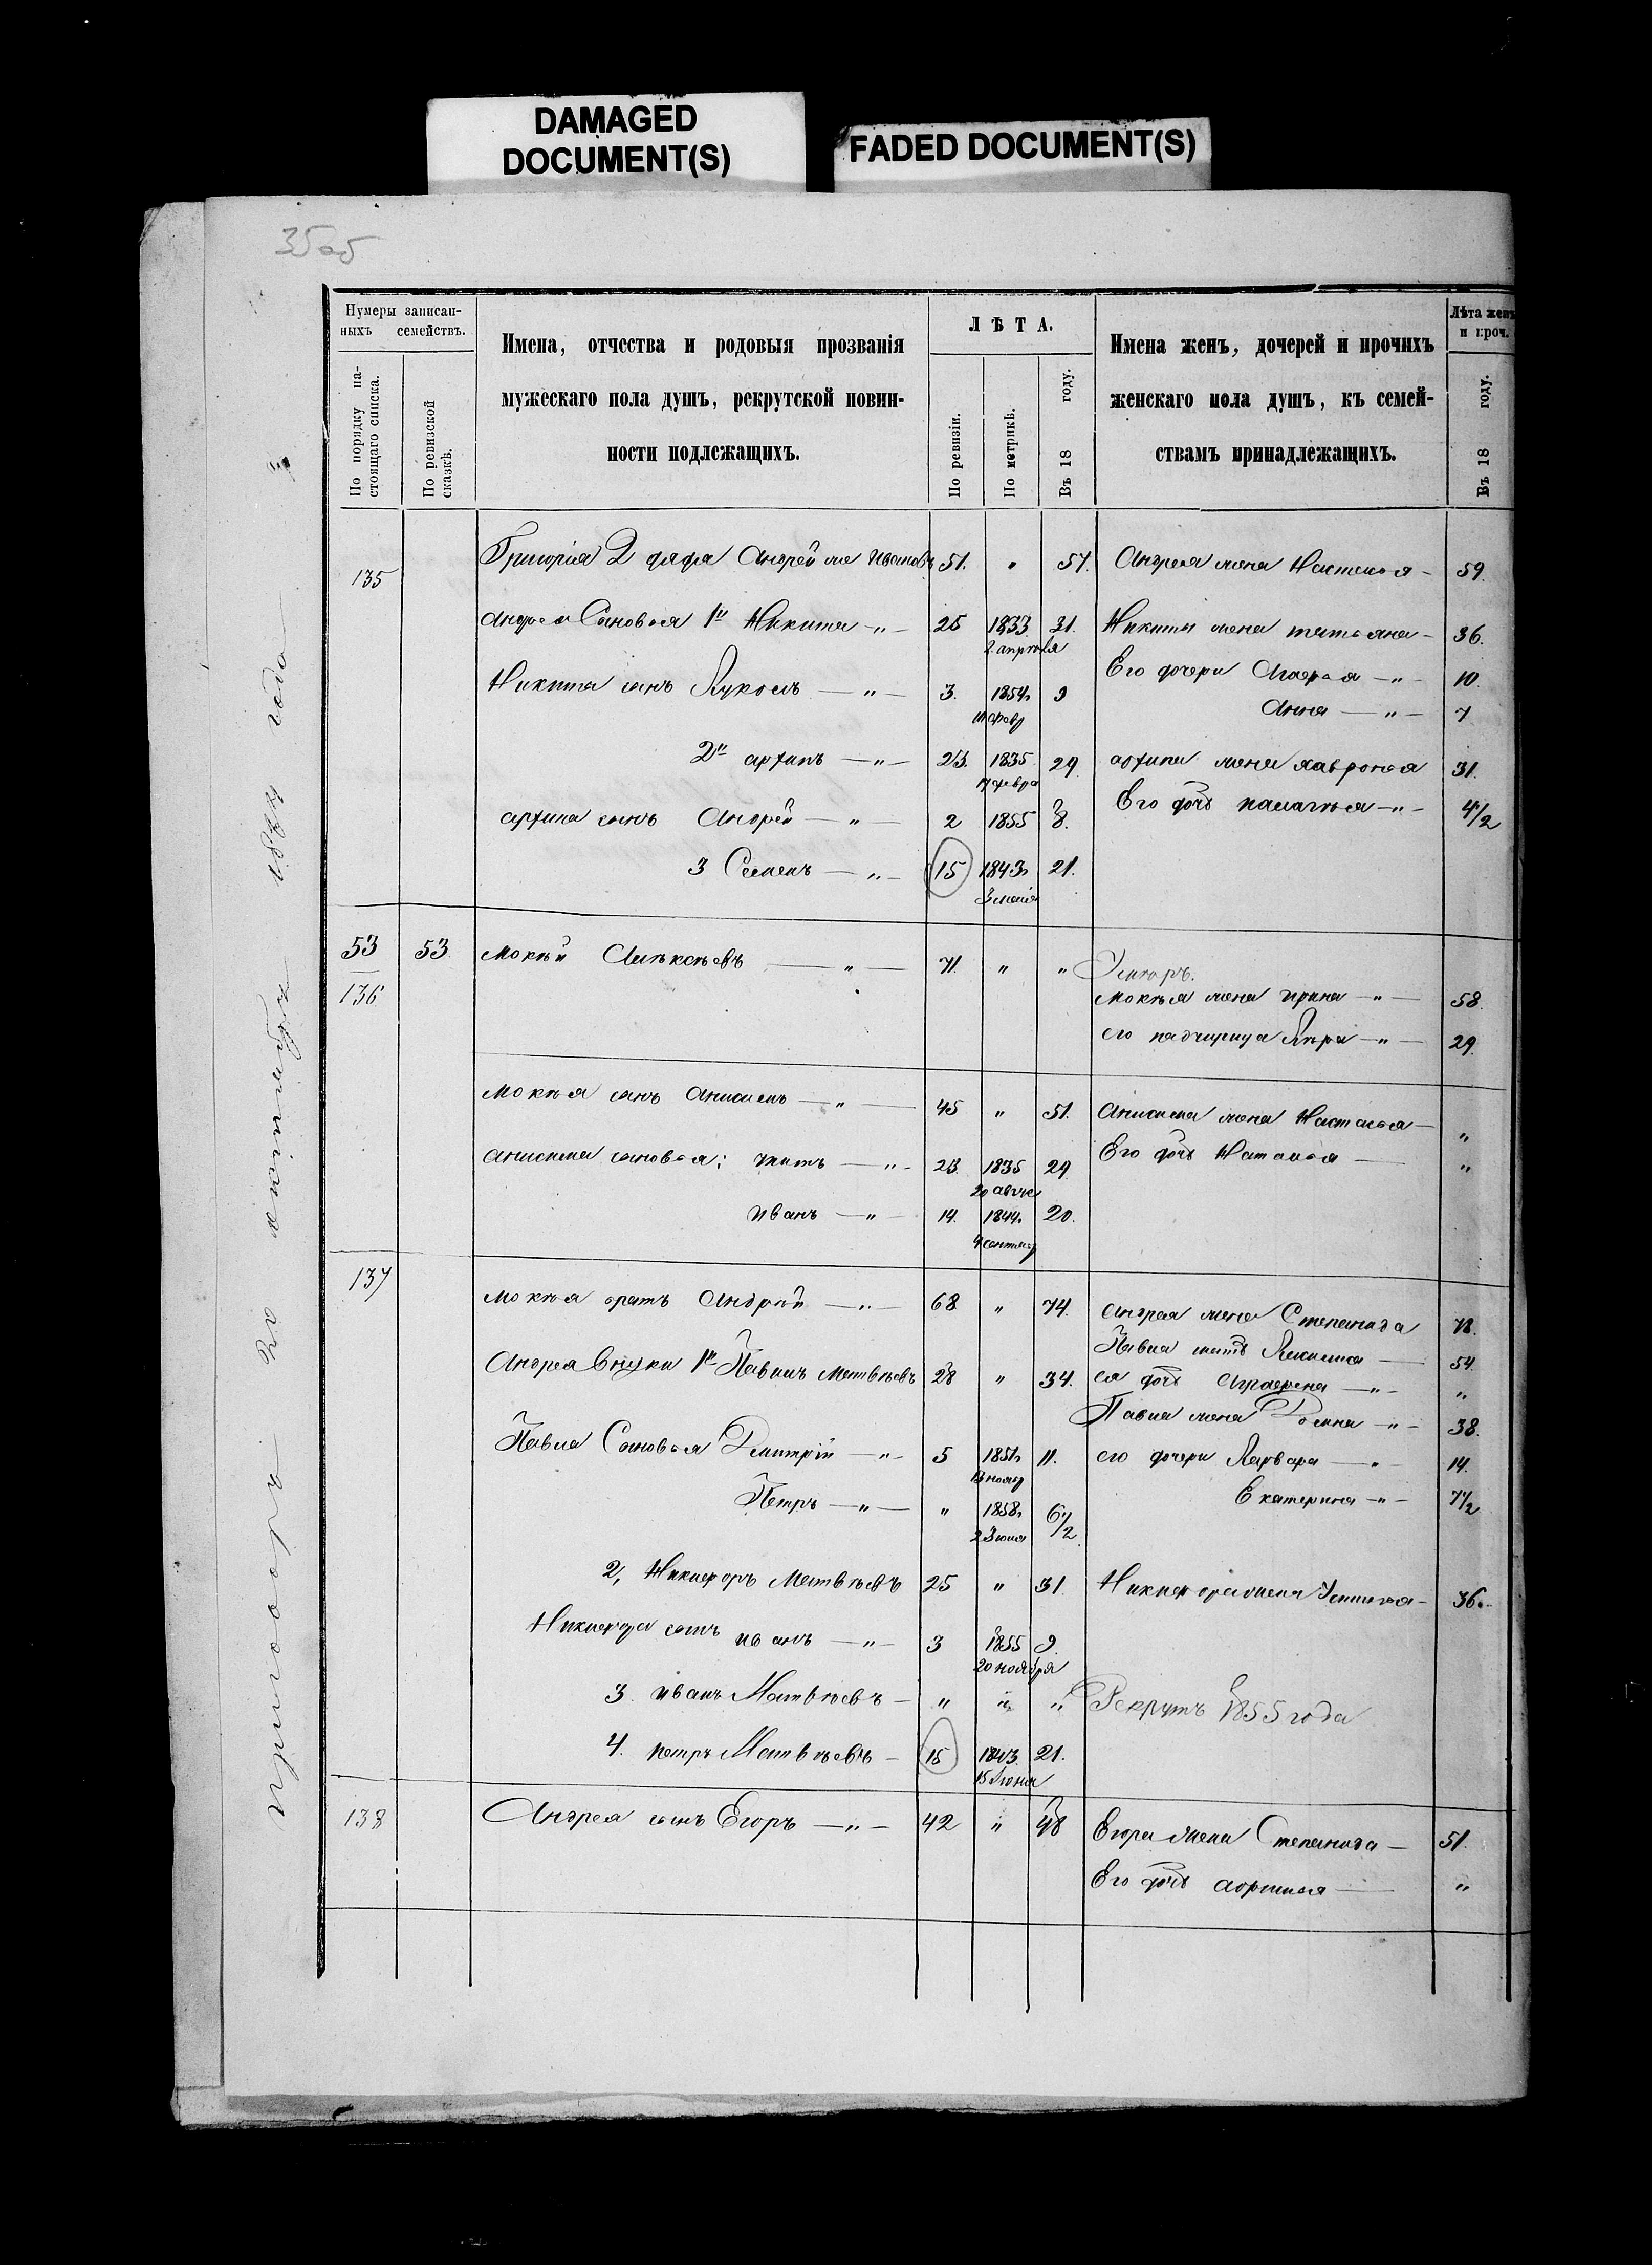 DAMAGED
DOCUMENT(S)
FADED DOCUMENT(S)
35 об
Нумеры записан-
ныхъ семействъ.
По порядку на-
стоящаго списка.
По ревизской
сказкѣ.
Имена, отчества и родовыя прозванія
мужескаго пола душъ, рекрутской повин-
ности подлежащихъ.
ЛѢТА.
По ревизіи.
По метрикѣ.
Въ 18 году.
Имена женъ, дочерей и прочихъ
женскаго пола душъ, къ семей-
ствамъ принадлежащихъ.
Лѣта женъ
и проч.
Въ 18 году.
135 Григорія 2 дядя Андрей же Ивановъ 51. " 57. Андрея жена Настасья - 59.
Андрея Сыновья 1й Никита - " - 25 1833 31. Никиты жена татьяна - 36.
2 апреля
Никиты сынъ - " - 3. 1854 9 Его дочери - " - 10.
Анна - " - 7
2й архипъ - " - 23. 1835 29. архипа жена хавронья 31.
17 февра
архипа сынъ Андрей - " - 2 1855 8. Его дочь палагѣя - " - 4 1/2
3 Семенъ - " - 15 1843 21.
53 53. мокѣй Алѣксѣевъ - " - 71. " "
136 мокѣя жена ирина - " - 58.
его падчирица - " - 29.
мокѣя сынъ Анисимъ - " - 45 " 51. Анисима жена Настасья - "
анисима сыновья: титъ - " - 23. 1835 29. Его дочь Наталья - "
иванъ - " - 14. 1844 20.
137 мокѣя братъ Андрѣй - " - 68 " 74. андрея жена Степанида
Павла мать 54.
Андрея Внуки 1й Павилъ матвѣевъ 28 " 34. ея дочь Аграфена - " - "
Павла жена - " - 38.
Павла Сыновья Дмитрій - " - 5 1851 11. его дочери Варвара - " - 14.
Екатерина - " - 7 1/2
Петръ - " - " 1858 6 1/2
2, Никифоръ Матвѣевъ 25 " 31. Никифора жена Устинья - 36.
Никифора сынъ иванъ - " - 3 1855 9.
20 ноября
3. иванъ Матвѣевъ - " " " Рекрутъ 1855 года
4. петръ Матвѣевъ - 15 1843. 21.
15 Іюня
138 Андрея сынъ Егоръ - " - 42 " 48 Егора жена Степанида - 51.
Его дочь - "